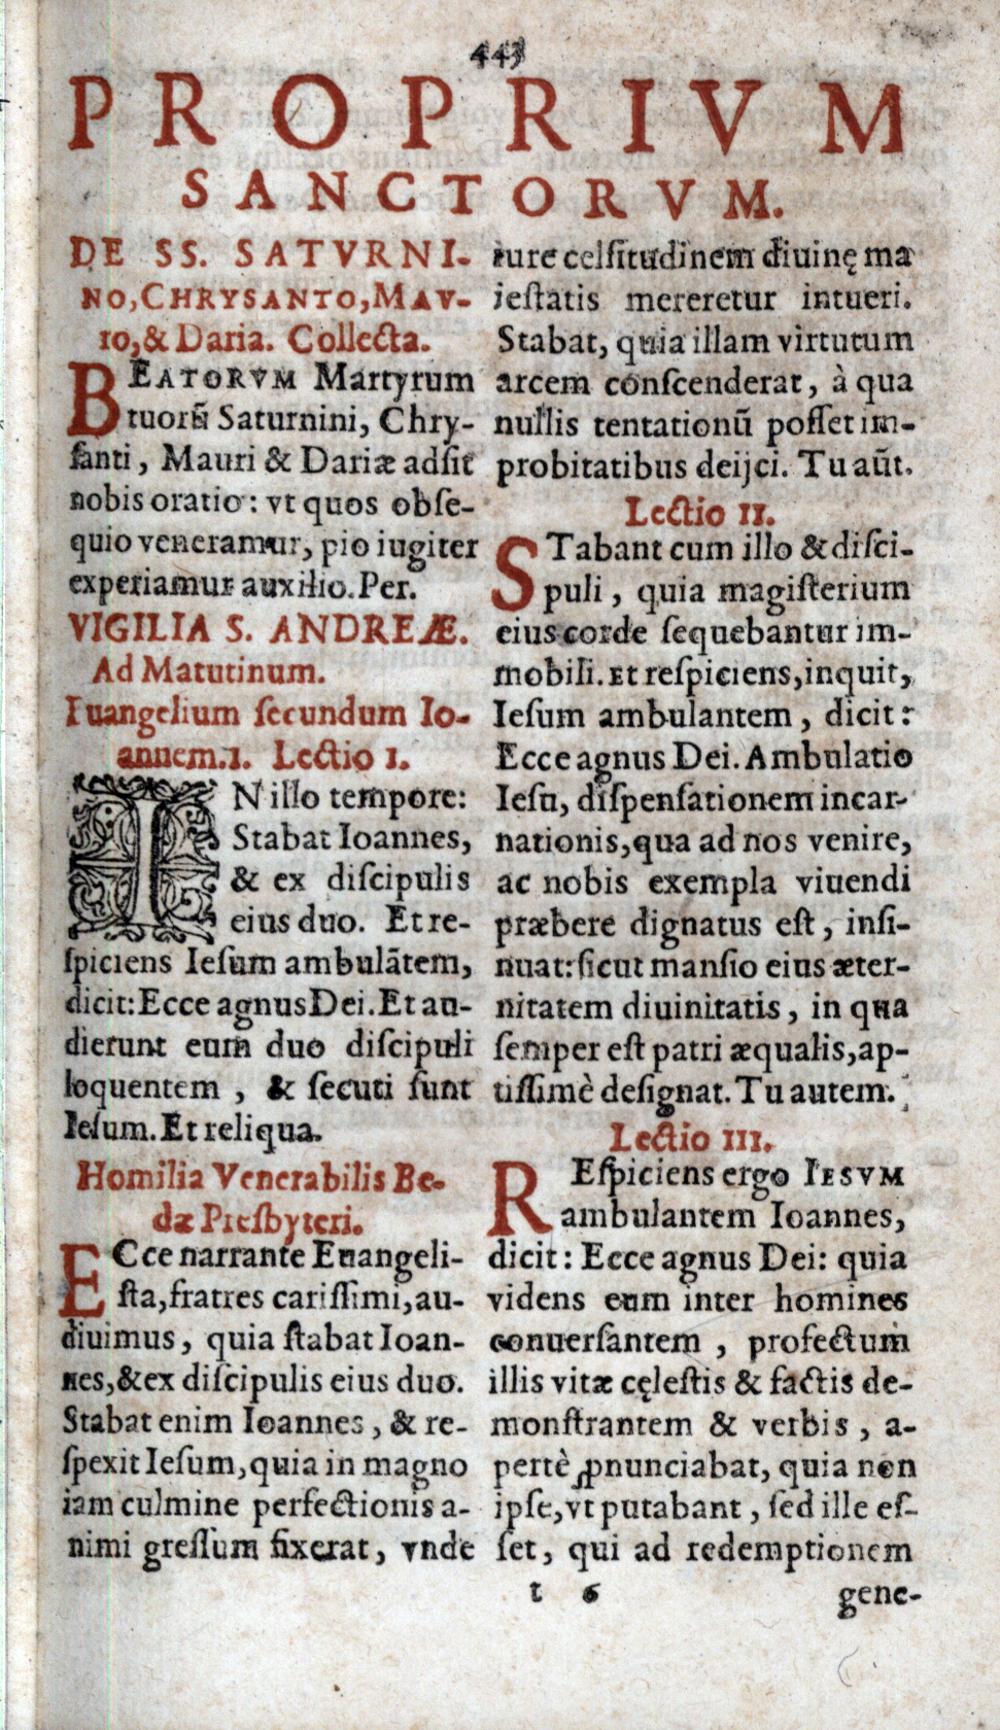 443
PROPRIVM
SANCTORVM.
DE SS. SATVRNI-
NO, CHRYSANTO, MAV-
ro, & Daria. Collecta.
BEATORVM Martyrum
tuorũ Saturnini, Chry-
ſanti, Mauri & Dariæ adſit
nobis oratio: vt quos obſe-
quio veneramur, pio iugiter
experiamur auxilio. Per.
VIGILIA S. ANDREÆ.
Ad Matutinum.
Euangelium ſecundum Io-
annem. 1. Lectio 1.
IN illo tempore:
Stabat Ioannes,
& ex diſcipulis
eius duo. Et re-
ſpiciens Ieſum ambulãtem,
dicit: Ecce agnus Dei. Et au-
dierunt eum duo diſcipuli
loquentem, & ſecuti ſunt
Ieſum. Et reliqua.
Homilia Venerabilis Be-
dæ Presbyteri.
ECce narrante Euangeli-
ſta, fratres cariſſimi, au-
diuimus, quia ſtabat Ioan-
nes, & ex diſcipulis eius duo.
Stabat enim Ioannes, & re-
ſpexit Ieſum, quia in magno
iam culmine perfectionis a-
nimi greſſum fixerat, vnde
iure celſitudinem diuinę ma
ieſtatis mereretur intueri.
Stabat, quia illam virtutum
arcem conſcenderat, à qua
nullis tentationũ poſſet im-
probitatibus deijci. Tu aũt.
Lectio II.
STabant cum illo & diſci-
puli, quia magiſterium
eius corde ſequebantur im-
mobili. Et reſpiciens, inquit,
Ieſum ambulantem, dicit:
Ecce agnus Dei. Ambulatio
Ieſu, diſpenſationem incar-
nationis, qua ad nos venire,
ac nobis exempla viuendi
præbere dignatus eſt, inſi-
nuat: ſicut manſio eius æter-
nitatem diuinitatis, in qua
ſemper eſt patri æqualis, ap-
tiſſimè deſignat. Tu autem.
Lectio III.
REſpiciens ergo IESVM
ambulantem Ioannes,
dicit: Ecce agnus Dei: quia
videns eum inter homines
conuerſantem, profectum
illis vitæ cęleſtis & factis de-
monſtrantem & verbis, a-
pertè ꝓnunciabat, quia non
ipſe, vt putabant, ſed ille eſ-
ſet, qui ad redemptionem
t 6
gene-